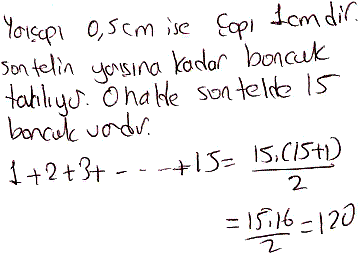 Yarıçapı 0,5cm ise Çapı 1cmdir.
son telin yarısına kadar boncuk
takılıyor. O halde son telde 15
boncuk vardır.
1+2+3+ - - - - +15 = 15.(15+1) / 2
= 15.16 / 2 = 120